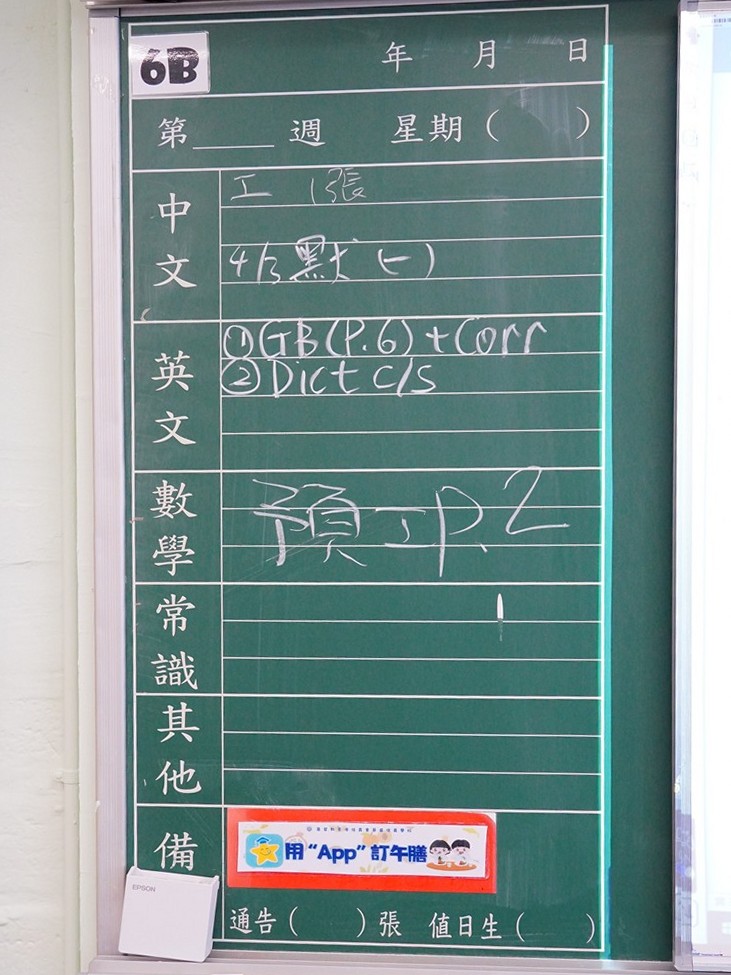 6B
年 月 日
第____週 星期( )
中文
工 1張
4/3 默(一)
英文
①GB(P.6)+Corr
②Dict c/s
數學
預工P.2
常識
其他
備
用“App”訂午膳
EPSON
通告( )張 值日生( )